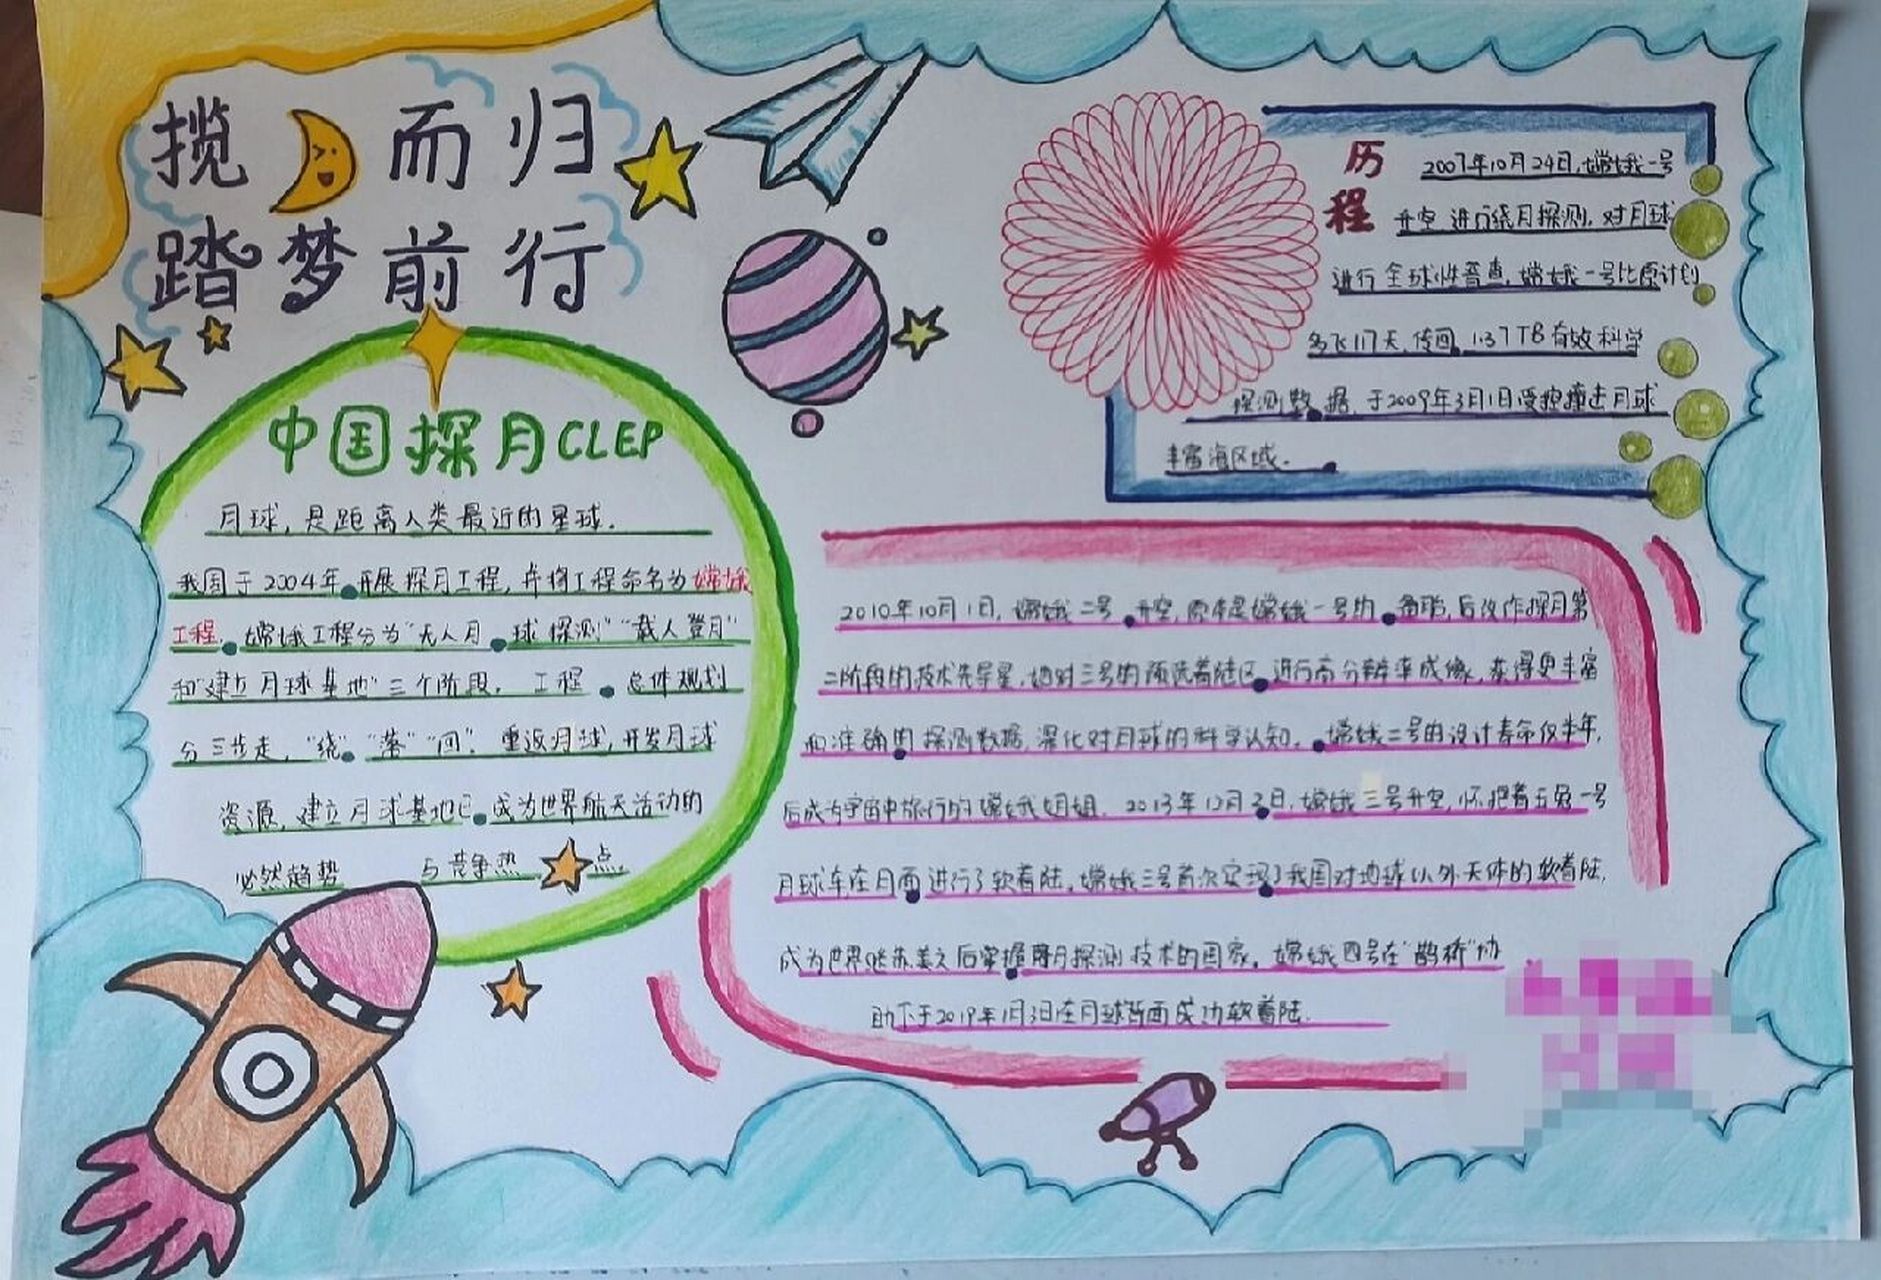 揽而归
踏梦前行
中国探月CLEP
月球，是距离人类最近的星球．
我国于2004年开展探月工程，并将工程命名为嫦娥
工程．嫦娥工程分为“无人月球探测”“载人登月”
和“建立月球基地”三个阶段．工程总体规划
分三步走，“绕”“落”“回”．重返月球，开发月球
资源，建立月球基地已成为世界航天活动的
必然趋势与竞争热点．
历程
2007年10月24日，嫦娥一号
升空进行绕月探测，对月球
进行全球性普查，嫦娥一号比原计划
多飞117天，传回1.37TB有效科学
探测数据，于2009年3月1日受控撞击月球
丰富海区域．
2010年10月1日，嫦娥二号升空，原本是嫦娥一号的备胎，后改作探月第
二阶段的技术先导星，她对三号的预选着陆区进行高分辨率成像，获得更丰富
和准确的探测数据，深化对月球的科学认知．嫦娥二号的设计寿命仅半年，
后成为宇宙中旅行的嫦娥姐姐．2013年12月2日，嫦娥三号升空，怀抱着玉兔一号
月球车在月面进行了软着陆，嫦娥三号首次实现了我国对地球以外天体的软着陆，
成为世界继苏美之后掌握月探测技术的国家．嫦娥四号在“鹊桥”协
助下于2019年1月3日在月球背面成功软着陆．